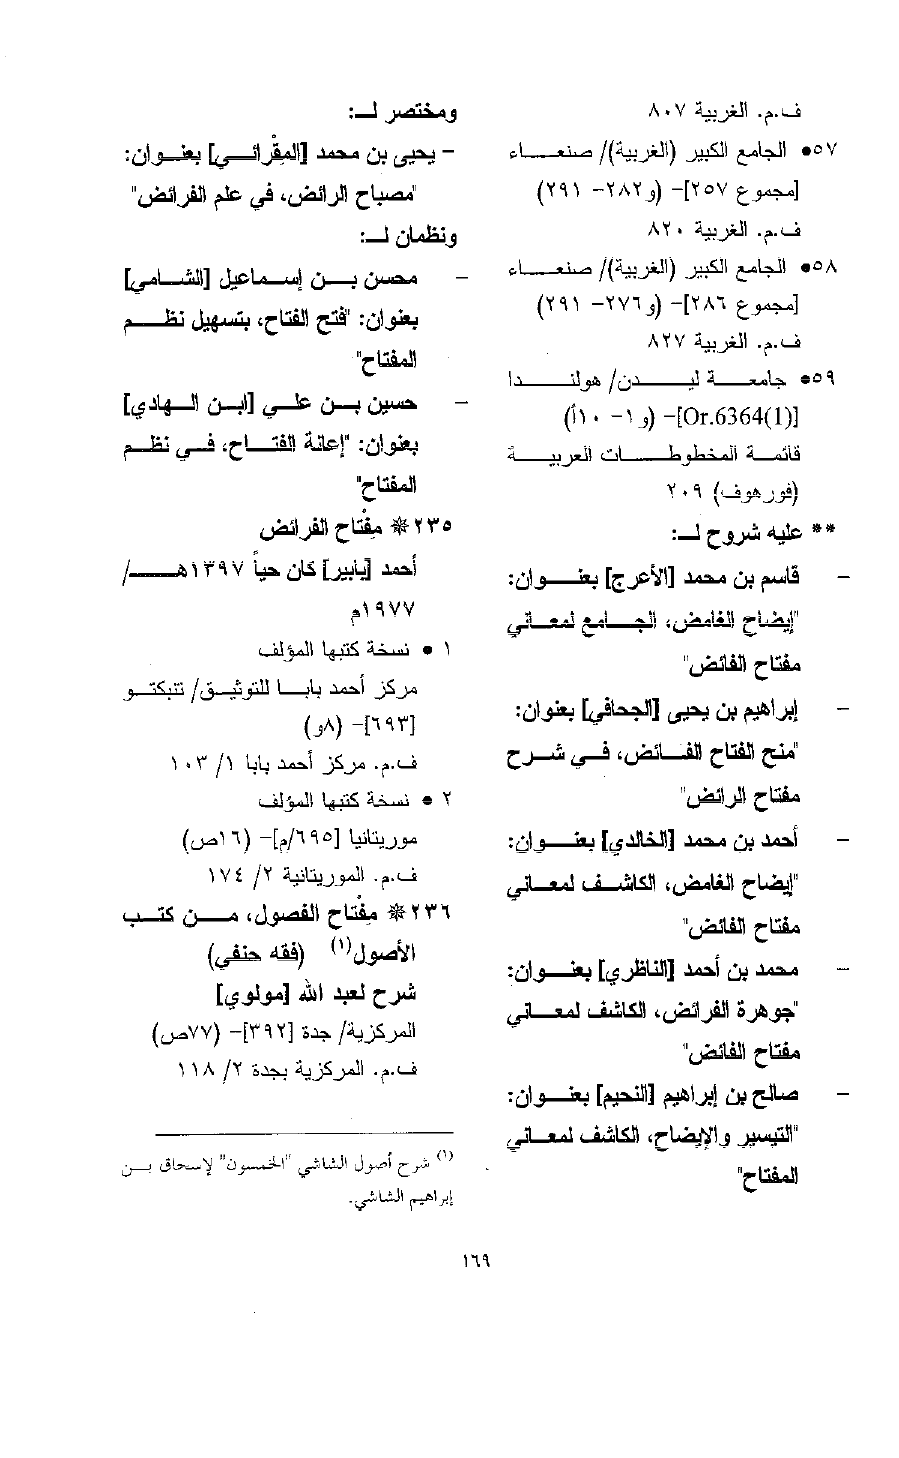 ف.م. الغربية ٨٠٧
٥٧• الجامع الكبير (الغربية)/ صنعـــاء
[مجموع ٢٥٧]- (و٢٨٢- ٢٩١)
ف.م. الغربية ٨٢٠
٥٨• الجامع الكبير (الغربية)/ صنعـــاء
[مجموع ٢٨٦]- (و٢٧٦- ٢٩١)
ف.م. الغربية ٨٢٧
٥٩• جامعـــة ليـــدن/ هولنـــدا
[Or.6364(1)]- (و١- ١٠أ)
قائمـــة المخطوطـــات العربيـــة
(فورهوف) ٢٠٩
** عليه شروح لـ:
- قاسم بن محمد [الأعرج] بعنـــوان:
"إيضاح الغامض، الجـــامع لمعـــاني
مفتاح الفائض"
- إبراهيم بن يحيى [الجحافي] بعنوان:
"منح الفتاح الفـــائض، فـــي شـــرح
مفتاح الرائض"
- أحمد بن محمد [الخالدي] بعنـــوان:
"إيضاح الغامض، الكاشـــف لمعـــاني
مفتاح الفائض"
- محمد بن أحمد [الناظري] بعنـــوان:
"جوهرة الفرائض، الكاشف لمعـــاني
مفتاح الفائض"
- صالح بن إبراهيم [النحيم] بعنـــوان:
"التيسير والإيضاح، الكاشف لمعـــاني
المفتاح"
ومختصر لـ:
- يحيى بن محمد [المقْرائـــي] بعنـــوان:
"مصباح الرائض، في علم الفرائض"
ونظمان لـ:
- محسن بـــن إسماعيل [الشـــامي]
بعنوان: "فتح الفتاح، بتسهيل نظـــم
المفتاح"
- حسين بـــن علـــي [ابـــن الـــهادي]
بعنوان: "إعانة الفتـــاح، فـــي نظـــم
المفتاح"
٢٣٥ * مفْتاح الفرائض
أحمد [بابير] كان حياً ١٣٩٧هـــ/
١٩٧٧م
١ • نسخة كتبها المؤلف
مركز أحمد بابـــا للتوثيـــق/ تنبكتـــو
[٦٩٣]- (٨و)
ف.م. مركز أحمد بابا ١/ ١٠٣
٢ • نسخة كتبها المؤلف
موريتانيا [٦٩٥/م]- (١٦ص)
ف.م. الموريتانية ٢/ ١٧٤
٢٣٦ * مفْتاح الفصول، مـــن كتـــب
الأصول(١) (فقه حنفي)
شرح لعبد الله [مولوي]
المركزية/ جدة [٣٩٢]- (٧٧ص)
ف.م. المركزية بجدة ٢/ ١١٨
(١) شرح أصول الشاشي "الخمسون" لإسحاق بـــن
إبراهيم الشاشي.
١٦٩